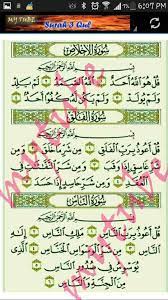 6:07 PM
MY TUBE
Surah 3 Qul
سُورَةُ الإِخْلَاصِ
بِسْمِ اللَّهِ الرَّحْمَٰنِ الرَّحِيمِ
قُلْ هُوَ اللَّهُ أَحَدٌ ۝ اللَّهُ الصَّمَدُ ۝ لَمْ يَلِدْ
وَلَمْ يُولَدْ ۝ وَلَمْ يَكُن لَّهُ كُفُوًا أَحَدٌ ۝
سُورَةُ الْفَلَقِ
بِسْمِ اللَّهِ الرَّحْمَٰنِ الرَّحِيمِ
قُلْ أَعُوذُ بِرَبِّ الْفَلَقِ ۝ مِن شَرِّ مَا خَلَقَ ۝ وَمِن
شَرِّ غَاسِقٍ إِذَا وَقَبَ ۝ وَمِن شَرِّ النَّفَّاثَاتِ
فِي الْعُقَدِ ۝ وَمِن شَرِّ حَاسِدٍ إِذَا حَسَدَ ۝
سُورَةُ النَّاسِ
بِسْمِ اللَّهِ الرَّحْمَٰنِ الرَّحِيمِ
قُلْ أَعُوذُ بِرَبِّ النَّاسِ ۝ مَلِكِ النَّاسِ ۝ إِلَٰهِ
النَّاسِ ۝ مِن شَرِّ الْوَسْوَاسِ الْخَنَّاسِ ۝ الَّذِي
يُوَسْوِسُ فِي صُدُورِ النَّاسِ ۝
مِنَ الْجِنَّةِ وَالنَّاسِ ۝